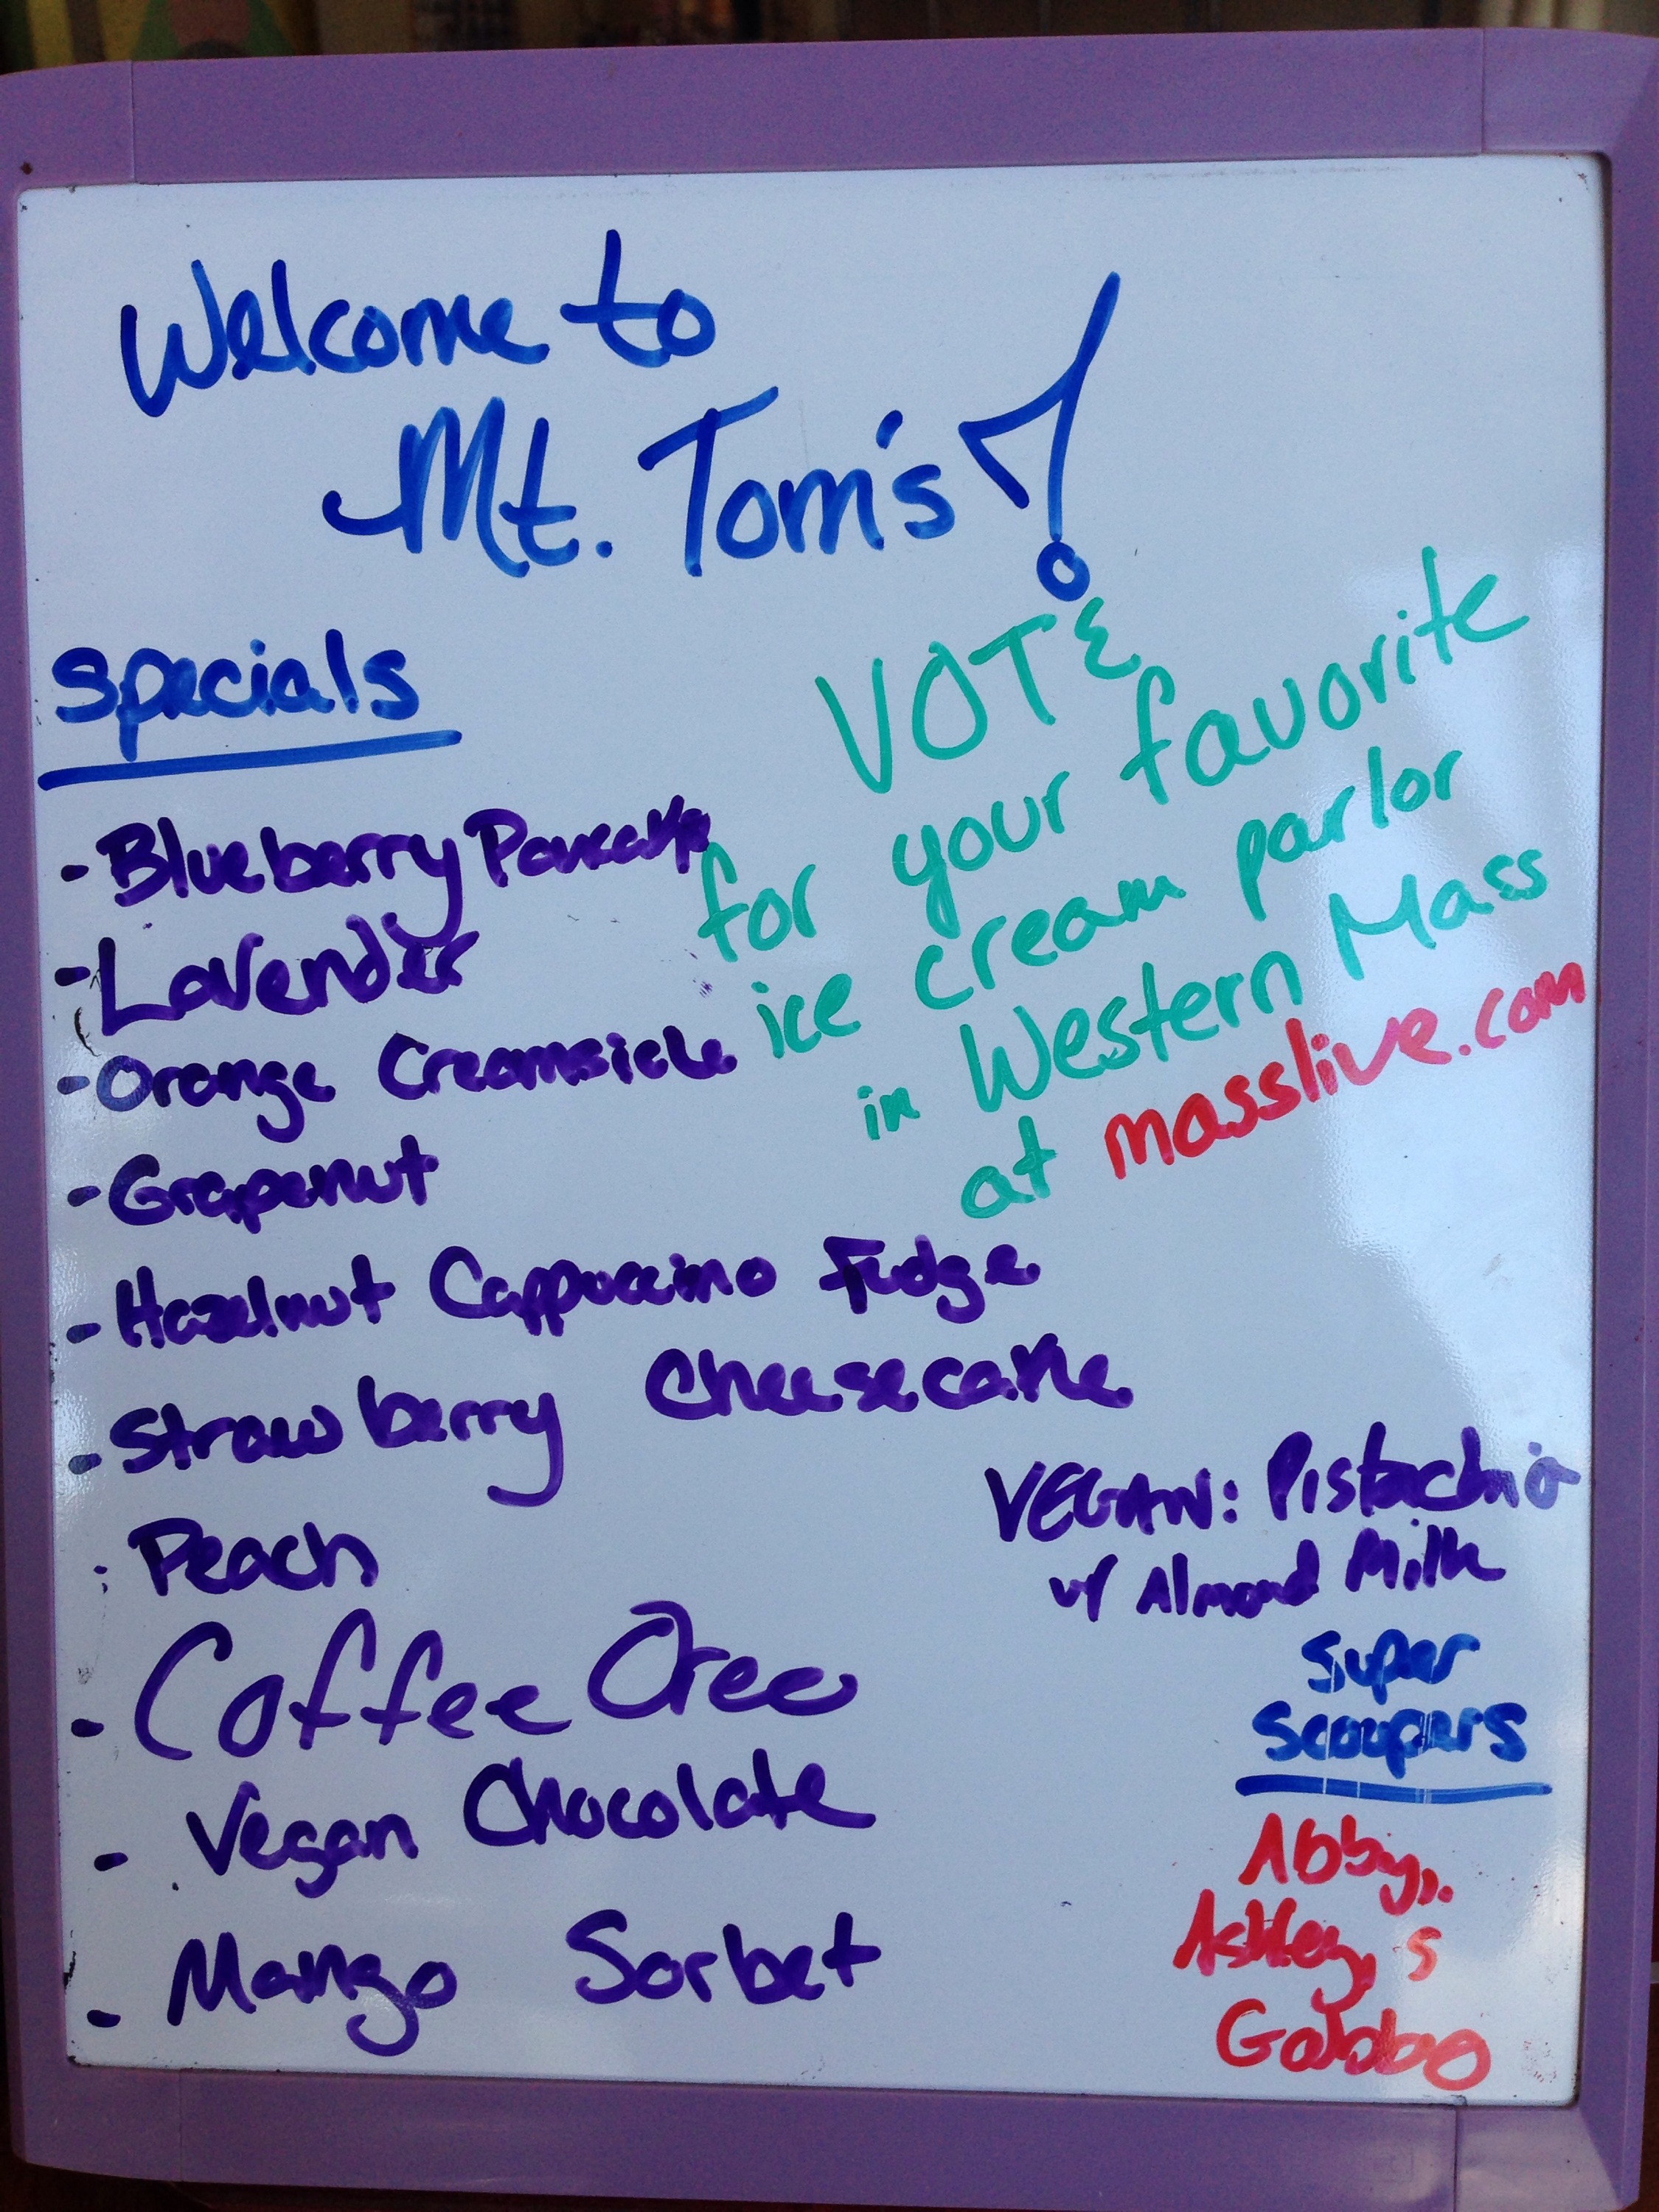 Welcome to
Mt. Tom's!
Specials
- Blueberry Pancake
- Lavender
- Orange Creamsicle
- Grapenut
- Hazelnut Cappuccino Fudge
- Strawberry Cheesecake
- Peach
- Coffee Oreo
- Vegan Chocolate
- Mango Sorbet
VOTE
for your favorite
ice cream parlor
in Western Mass
at masslive.com
VEGAN: Pistachio
w/ Almond Milk
Super
Scoopers
Abby,
Ashley,
Gabbo